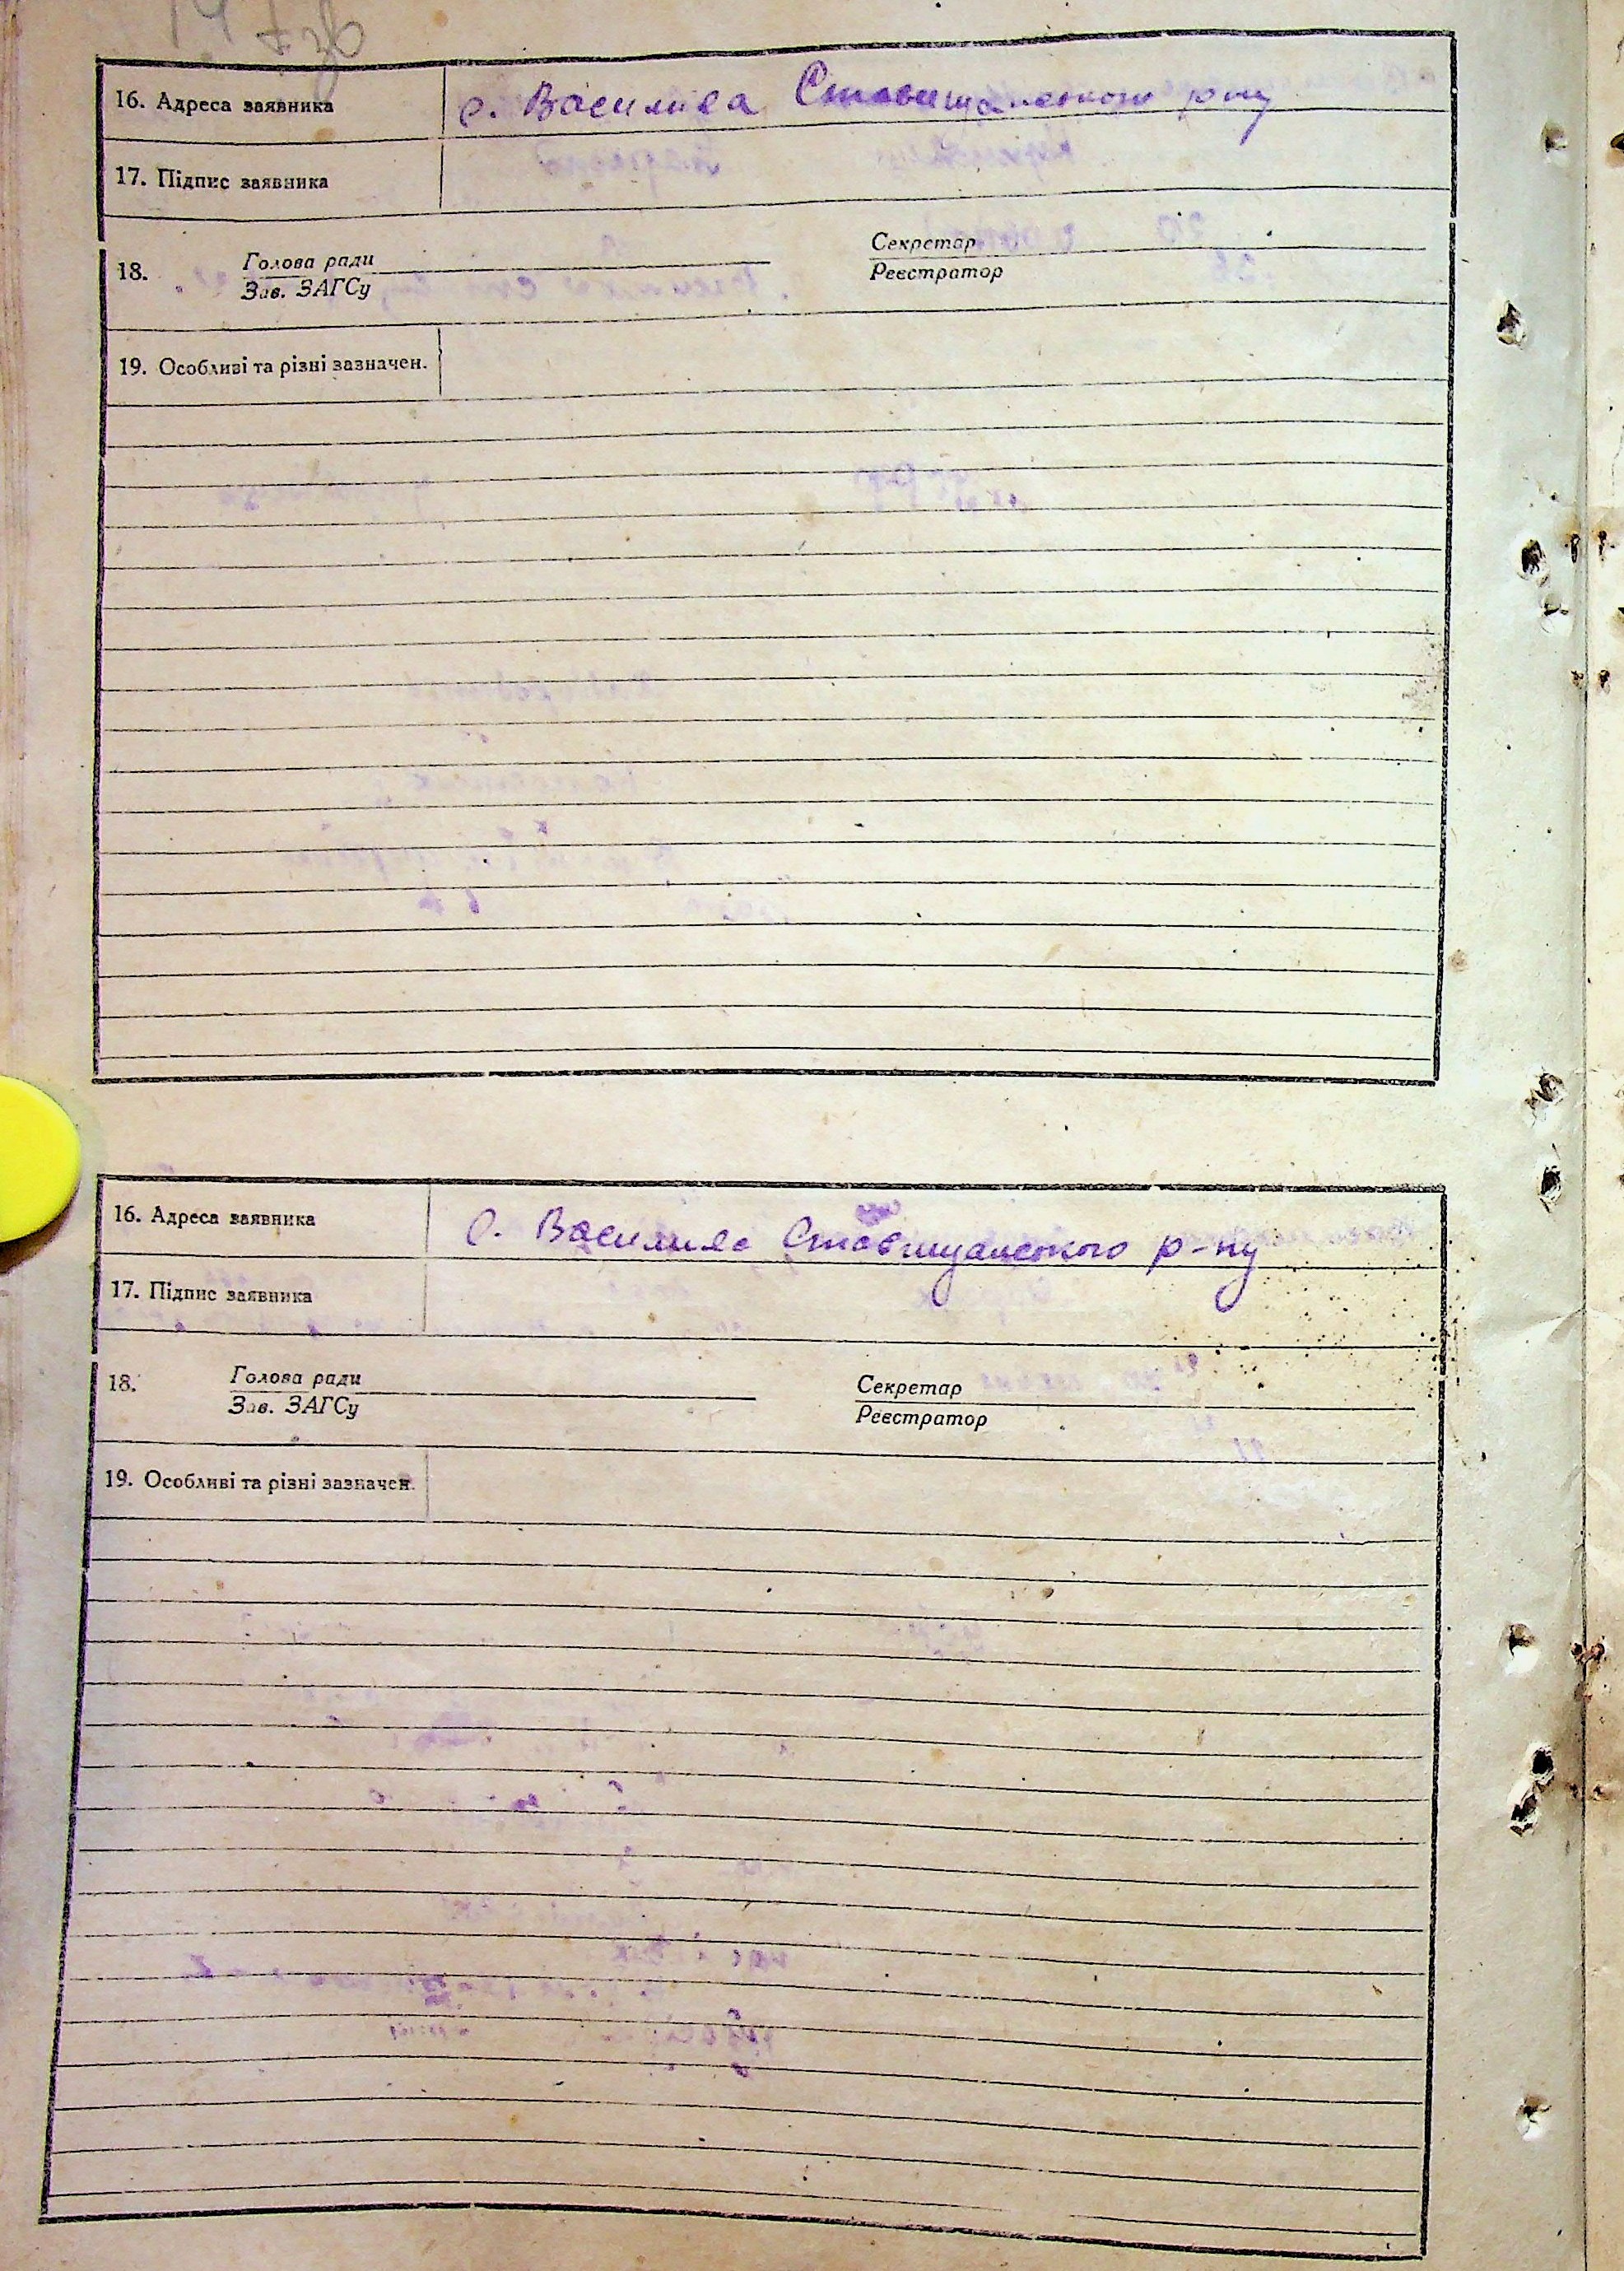 147зв
16. Адреса заявника с. Василиха Ставищанського р-ну
17. Підпис заявника
18. Голова ради Секретар
Зав. ЗАГСу Реєстратор
19. Особливі та різні зазначен.
16. Адреса заявника с. Василиха Ставищанського р-ну
17. Підпис заявника
18. Голова ради Секретар
Зав. ЗАГСу Реєстратор
19. Особливі та різні зазначен.